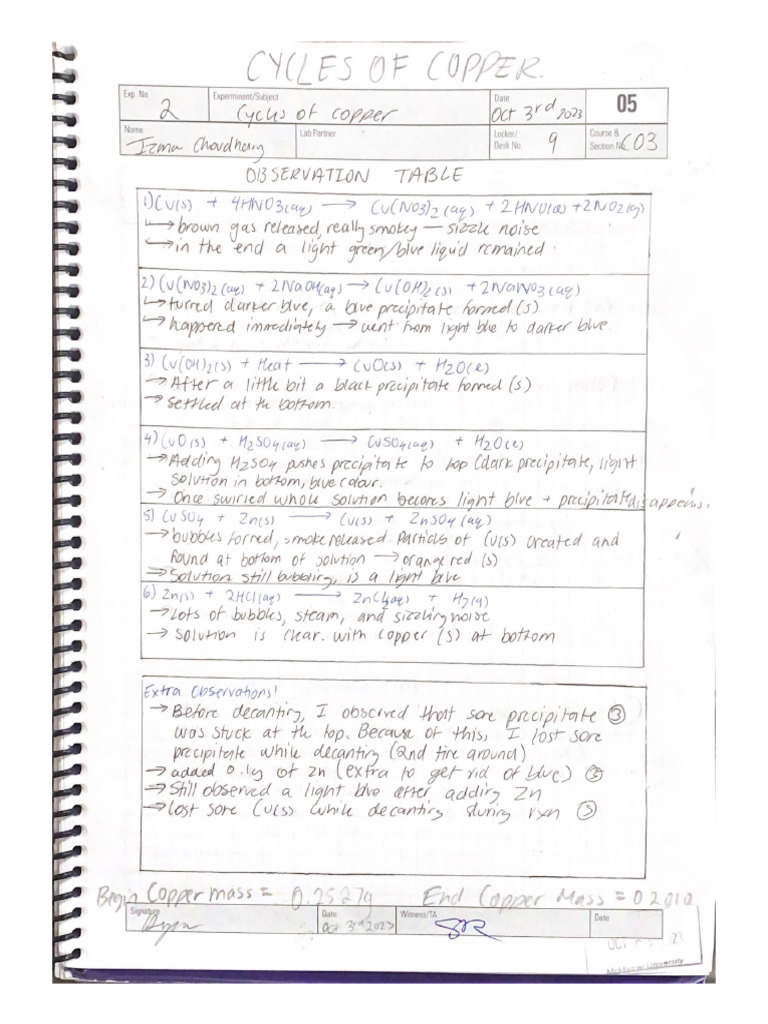 CYCLES OF COPPER.
Exp. No. 2
Experiment/Subject Cycles of copper
Date Oct 3rd 2023
05
Name Izma Choudhary
Lab Partner
Locker/ Desk No. 9
Course & Section No. C03
OBSERVATION TABLE
1) Cu(s) + 4HNO3(aq) → Cu(NO3)2 (aq) + 2H2O(l) + 2NO2(g)
↳ brown gas released, really smokey — sizzle noise
↳ in the end a light green/blue liquid remained.
2) Cu(NO3)2(aq) + 2NaOH(aq) → Cu(OH)2(s) + 2NaNO3(aq)
↳ turned darker blue, a blue precipitate formed (s)
↳ happened immediately → went from light blue to darker blue.
3) Cu(OH)2(s) + Heat → CuO(s) + H2O(l)
→ After a little bit a black precipitate formed (s)
→ settled at the bottom.
4) CuO(s) + H2SO4(aq) → CuSO4(aq) + H2O(l)
→ Adding H2SO4 pushes precipitate to top (dark precipitate, light
solution in bottom, blue colour.
→ Once swirled whole solution becomes light blue + precipitate disappears.
5) CuSO4 + Zn(s) → Cu(s) + ZnSO4(aq)
→ bubbles formed, smoke released. Particles of Cu(s) created and
found at bottom of solution → orange red (s)
→ Solution still bubbling, is a light blue
6) Zn(s) + 2HCl(aq) → ZnCl2(aq) + H2(g)
→ Lots of bubbles, steam, and sizzling noise
→ solution is clear. with copper (s) at bottom
Extra Observations!
→ Before decanting, I observed that some precipitate ③
was stuck at the top. Because of this, I lost some
precipitate while decanting (2nd time around)
→ added 0.1g of Zn (extra to get rid of blue) ⑤
→ Still observed a light blue after adding Zn
→ lost some Cu(s) while decanting during rxn ⑤
Begin Copper mass = 0.2527g End Copper Mass = 0.2010
Signature
Date Oct 3rd 2023
Witness/TA
Date
OCT 23